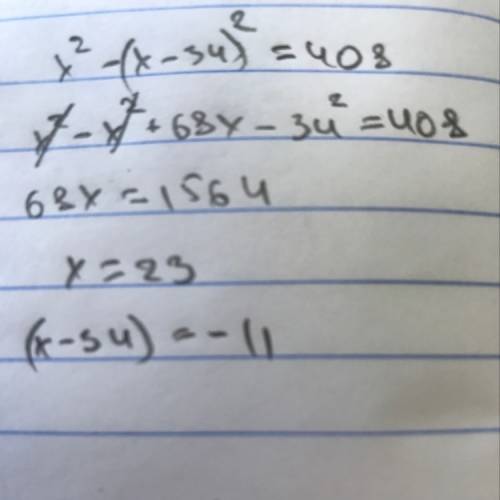 x² - (x - 34)² = 408
x² - x² + 68x - 34² = 408
68x = 1564
x = 23
(x - 34) = -11